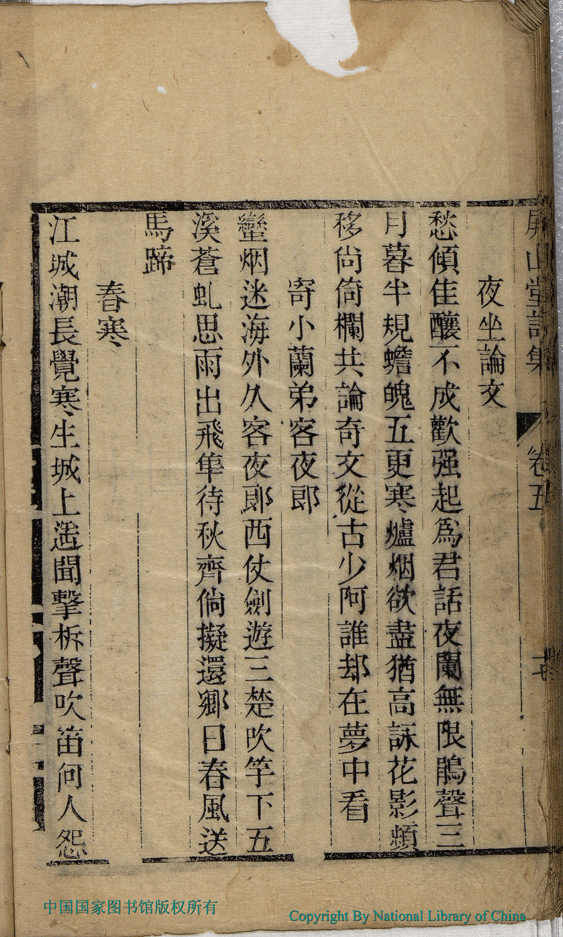 屏山堂詩集 卷五
夜坐論文
愁傾佳釀不成歡强起為君話夜闌無限鵑聲三
月暮半規蟾魄五更寒爐烟欲盡猶高詠花影頻
移尚倚欄共論奇文從古少阿誰却在夢中看
寄小蘭弟客夜郎
蠻烟迷海外久客夜郎西仗劍遊三楚吹竽下五
溪蒼虬思雨出飛隼待秋齊倘擬還鄉日春風送
馬蹄
春寒
江城潮長覺寒生城上遥聞擊柝聲吹笛何人怨
中国国家图书馆版权所有
Copyright By National Library of China